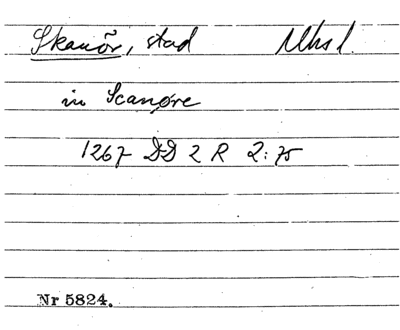 Skanör, stad
in Scanøre
1267 DD 2 R 2:75
Nr 5824.